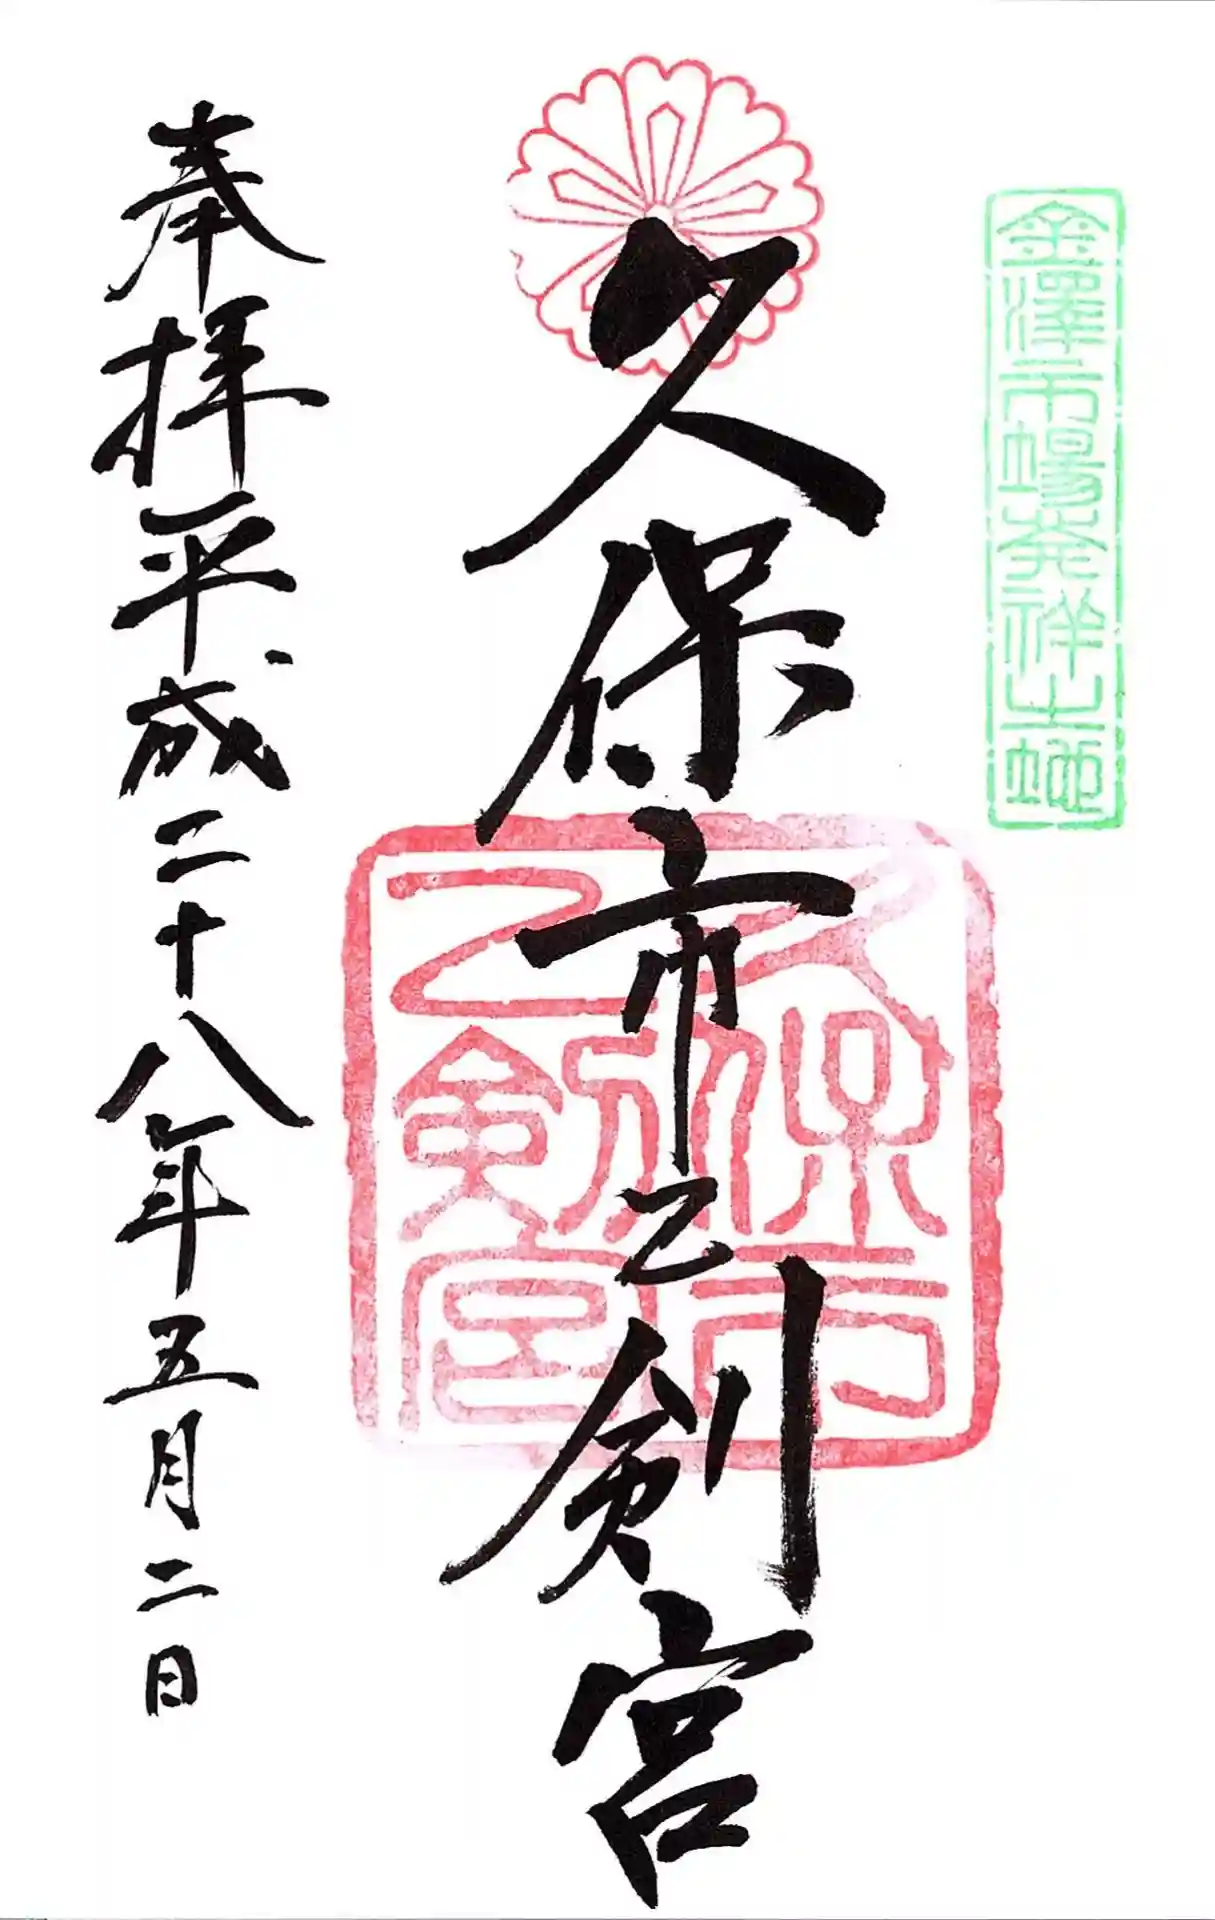 金澤市場発祥之地
久保市乙剣宮
久保市乙剣宮
奉拝平成二十八年五月二日